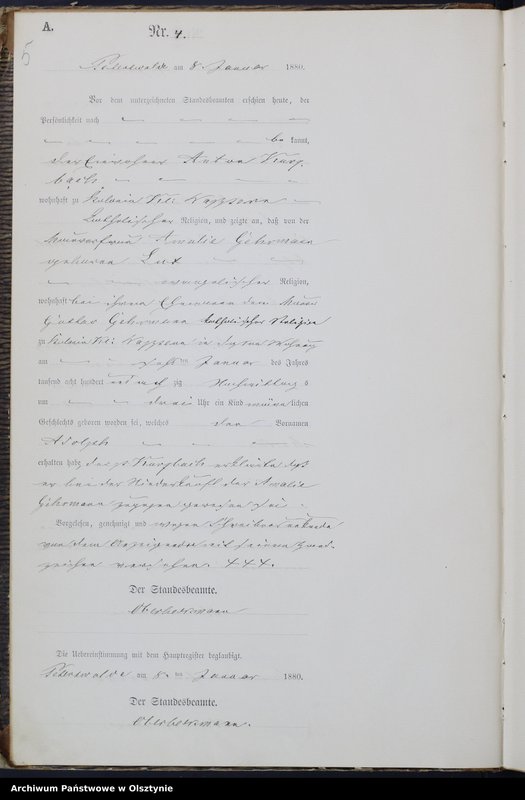 A.
Nr. 4.
5
am 8. Januar 1880.
Vor dem unterzeichneten Standesbeamten erschien heute, der
Persönlichkeit nach
be kannt,
der Einwohner Anton
wohnhaft zu
katholischer Religion, und zeigte an, daß von der
Maurerfrau Amalie Gehrmann
geborene Lux
evangelischer Religion,
wohnhaft bei ihrem Ehemann dem Maurer
Gustav Gehrmann katholischer Religion
zu in
am Januar des Jahres
tausend acht hundert und acht zig Nachmittag s
um drei Uhr ein Kind männ lichen
Geschlechts geboren worden sei, welches den Vornamen
Adolph
erhalten habe der p. erklärte daß
er bei der Niederkunft der Amalie
Gehrmann zugegen gewesen sei.
Vorgelesen, genehmigt und wegen Schreibensunkunde
von dem Anzeigenden mit seinem Hand-
zeichen versehen. +++.
Der Standesbeamte.
Die Uebereinstimmung mit dem Hauptregister beglaubigt.
am 8. ten Januar 1880.
Der Standesbeamte.
Archiwum Państwowe w Olsztynie